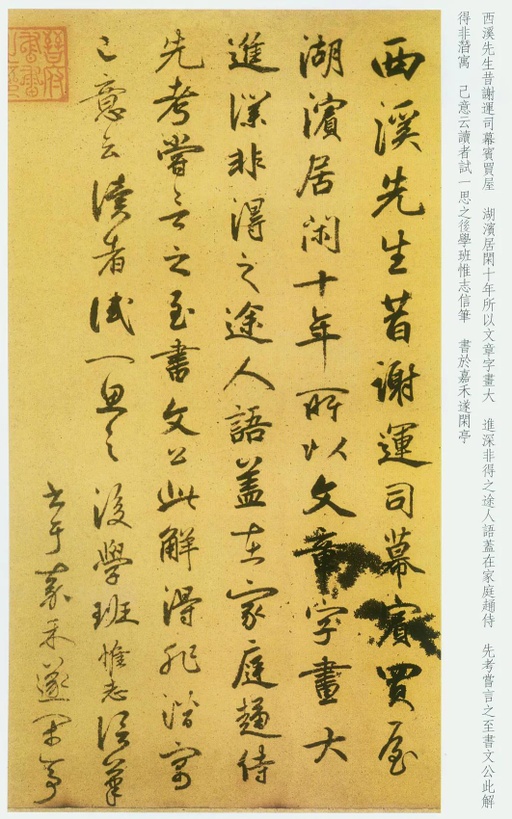 西溪先生昔謝運司幕賓買屋 湖濱居閑十年所以文章字畫大 進深非得之途人語蓋在家庭趨侍 先考嘗言之至書文公此解
得非潛寓 己意云讀者試一思之後學班惟志信筆 書於嘉禾遂閑亭
西溪先生昔謝運司幕賓買屋
湖濱居閑十年所以文章字畫大
進深非得之途人語蓋在家庭趨侍
先考嘗言之至書文公此解得非潛寓
己意云讀者試一思之後學班惟志信筆
書于嘉禾遂閑亭